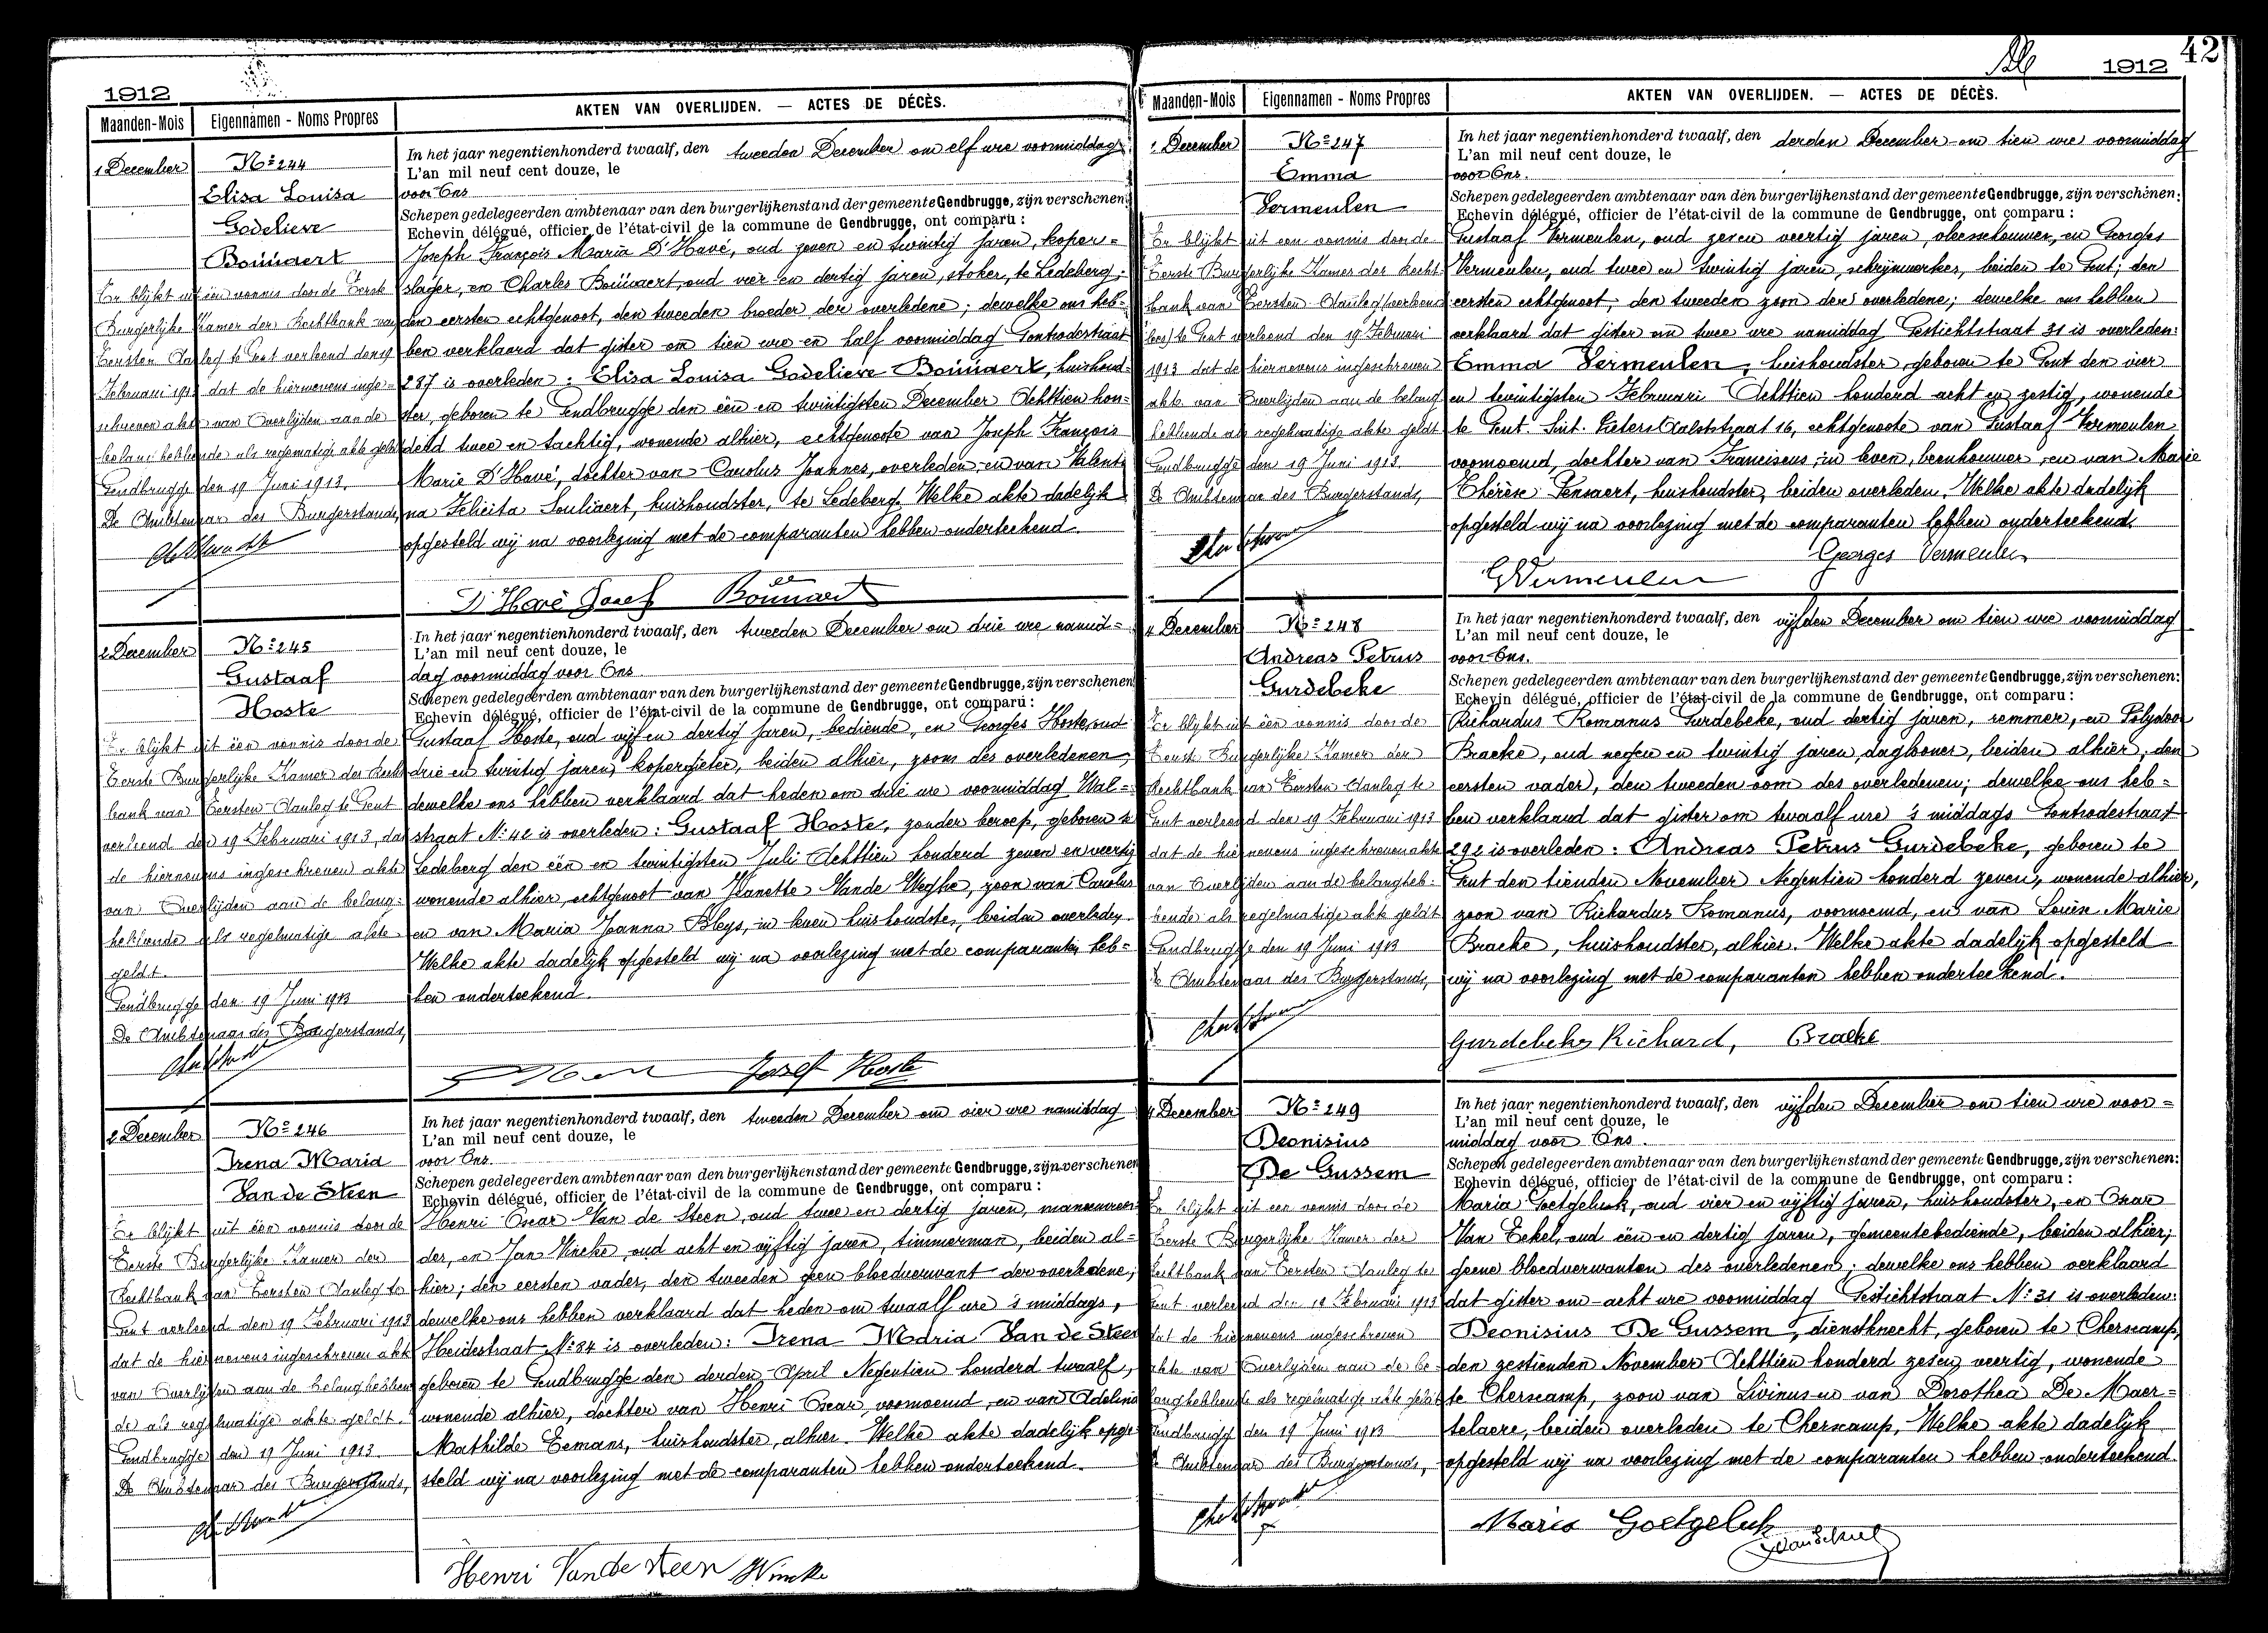 1912
AKTEN VAN OVERLIJDEN. — ACTES DE DÉCÈS.
Maanden-Mois
Eigennamen - Noms Propres
1 December
No 244
Elisa Louisa
Godelieve
Boúúaert
Er blijkt uit een vonnis door de Eerste
Burgerlijke Kamer der Rechtbank van
Eersten Aanleg te Gent verleend den 19
Februari 1913 dat de hiernevens inge-
schreven akte van Overlijden aan de
belanghebbende als regelmatige akte geldt
Gendbrugge den 19 Juni 1913.
De Ambtenaar des Burgerstands,
In het jaar negentienhonderd twaalf, den tweeden December om elf ure voormiddag
L'an mil neuf cent douze, le
voor Ons
Schepen gedelegeerden ambtenaar van den burgerlijkenstand der gemeente Gendbrugge, zijn verschenen:
Echevin délégué, officier de l'état-civil de la commune de Gendbrugge, ont comparu :
Joseph François Maria D'Havé, oud zeven en twintig jaren, koper-
slager, en Charles Boúúaert, oud vier en dertig jaren, stoker, te Ledeberg;
den eersten echtgenoot, den tweeden broeder der overledene; dewelke ons heb-
ben verklaard dat gister om tien ure en half voormiddag Gontrodestraat
287 is overleden: Elisa Louisa Godelieve Boúúaert, huishoud-
ster, geboren te Gendbrugge den één en twintigsten December Achttien hon-
derd twee en tachtig, wonende alhier, echtgenoote van Joseph François
Marie D'Havé, dochter van Carolus Joannes, overleden, en van Valenti
na Felicita Souliaert, huishoudster, te Ledeberg. Welke akte dadelijk
opgesteld wij na voorlezing met de comparanten hebben onderteekend.
D'Havé Josef Boúúaert
2 December
No 245
Gustaaf
Hoste
Er blijkt uit één vonnis door de
Eerste Burgerlijke Kamer der Recht
bank van Eersten Aanleg te Gent
verleend den 19 Februari 1913, dat
de hiernevens ingeschreven akte
van Overlijden aan de belang-
hebbende als regelmatige akte
geldt.
Gendbrugge den 19 Juni 1913
De Ambtenaar des Burgerstands,
In het jaar negentienhonderd twaalf, den tweeden December om drie ure namid-
L'an mil neuf cent douze, le
dag voormiddag voor Ons
Schepen gedelegeerden ambtenaar van den burgerlijkenstand der gemeente Gendbrugge, zijn verschenen
Echevin délégué, officier de l'état-civil de la commune de Gendbrugge, ont comparu :
Gustaaf Hoste, oud vijf en dertig jaren, bediende, en Georges Hoste, oud
drie en twintig jaren, kopergieter, beiden alhier, zoons des overledenen;
dewelke ons hebben verklaard dat heden om drie ure voormiddag Wal-
straat No 42 is overleden: Gustaaf Hoste, zonder beroep, geboren te
Ledeberg den één en twintigsten Juli Achttien honderd zeven en veertig
wonende alhier, echtgenoot van Jeanette Vande Weghe, zoon van Carolus
en van Maria Joanna Bleys, in leven huishoudster, beiden overleden.
Welke akte dadelijk opgesteld wij na voorlezing met de comparanten heb-
ben onderteekend.
Josef Hoste
2 December
No 246
Irena Maria
Van de Steen
Er blijkt uit één vonnis door de
Eerste Burgerlijke Kamer der
Rechtbank van Eersten Aanleg te
Gent verleend den 19 Februari 1913
dat de hiernevens ingeschreven akte
van Overlijden aan de belanghebben
de als regelmatige akte geldt.
Gendbrugge den 19 Juni 1913
De Ambtenaar des Burgerstands,
In het jaar negentienhonderd twaalf, den tweeden December om vier ure namiddag
L'an mil neuf cent douze, le
voor Ons
Schepen gedelegeerden ambtenaar van den burgerlijkenstand der gemeente Gendbrugge, zijn verschenen
Echevin délégué, officier de l'état-civil de la commune de Gendbrugge, ont comparu :
Henri Oscar Van de Steen, oud twee en dertig jaren, mandenvoer
der, en Jan Wincke, oud acht en vijftig jaren, timmerman, beiden al-
hier; den eersten vader, den tweeden geen bloedverwant der overledene;
dewelke ons hebben verklaard dat heden om twaalf ure 's middags,
Heidestraat No 84 is overleden: Irena Maria Van de Steen
geboren te Gendbrugge den derden April Negentien honderd twaalf,
wonende alhier, dochter van Henri Oscar, voornoemd, en van Adelina
Mathilde Eemans, huishoudster, alhier. Welke akte dadelijk opge
steld wij na voorlezing met de comparanten hebben onderteekend.
Henri Van de Steen Wincke
42
1912
Maanden-Mois
Eigennamen - Noms Propres
AKTEN VAN OVERLIJDEN. — ACTES DE DÉCÈS.
2 December
No 247
Emma
Vermeulen
Er blijkt uit een vonnis door de
Eerste Burgerlijke Kamer der Recht-
bank van Eersten Aanleg
te Gent verleend den 19 Februari
1913 dat de hiernevens ingeschreven
akte van Overlijden aan de belang
hebbende als regelmatige akte geldt
Gendbrugge den 19 Juni 1913
De Ambtenaar des Burgerstands,
In het jaar negentienhonderd twaalf, den derden December om tien ure voormiddag
L'an mil neuf cent douze, le
voor Ons.
Schepen gedelegeerden ambtenaar van den burgerlijkenstand der gemeente Gendbrugge, zijn verschenen:
Echevin délégué, officier de l'état-civil de la commune de Gendbrugge, ont comparu :
Gustaaf Vermeulen, oud zeven veertig jaren, vleeschouwer, en Georges
Vermeulen, oud twee en twintig jaren, schrijnwerker, beiden te Gent; den
eersten echtgenoot, den tweeden zoon der overledene; dewelke ons hebben
verklaard dat gister om twee ure namiddag Gestichtstraat 31 is overleden:
Emma Vermeulen, huishoudster, geboren te Gent den vier
en twintigsten Februari Achttien honderd acht en zestig, wonende
te Gent. Sint. Pieters Aalststraat 16, echtgenoote van Gustaaf Vermeulen
voornoemd, dochter van Franciscus, in leven, beenhouwer, en van Marie
Thérèse Sensaert, huishoudster, beiden overleden. Welke akte dadelijk
opgesteld wij na voorlezing met de comparanten hebben onderteekend.
Georges Vermeulen
G Vermeulen
4 December
No 248
Andreas Petrus
Gurdebeke
Er blijkt uit één vonnis door de
Eerste Burgerlijke Kamer der
Rechtbank van Eersten Aanleg te
Gent verleend den 19 Februari 1913
dat de hiernevens ingeschreven akte
van Overlijden aan de belangheb-
bende als regelmatige akte geldt
Gendbrugge den 19 Juni 1913
De Ambtenaar des Burgerstands,
In het jaar negentienhonderd twaalf, den vijfden December om tien ure voormiddag
L'an mil neuf cent douze, le
voor Ons.
Schepen gedelegeerden ambtenaar van den burgerlijkenstand der gemeente Gendbrugge, zijn verschenen:
Echevin délégué, officier de l'état-civil de la commune de Gendbrugge, ont comparu :
Richardus Romanus Gurdebeke, oud dertig jaren, remmer, en Polydoor
Bracke, oud negen en twintig jaren, daglooner, beiden alhier; den
eersten vader, den tweeden oom des overledenen; dewelke ons heb-
ben verklaard dat gister om twaalf ure 's middags Gontrodestraat
292 is overleden: Andreas Petrus Gurdebeke, geboren te
Gent den tienden November Negentien honderd zeven, wonende alhier,
zoon van Richardus Romanus, voornoemd, en van Marie
Bracke, huishoudster, alhier. Welke akte dadelijk opgesteld
wij na voorlezing met de comparanten hebben onderteekend.
Gurdebeke Richard, Bracke
4 December
No 249
Deonisius
De Gussem
Er blijkt uit een vonnis door de
Eerste Burgerlijke Kamer der
Rechtbank van Eersten Aanleg te
Gent verleend den 19 Februari 1913
dat de hiernevens ingeschreven
akte van Overlijden aan de be
langhebbende als regelmatige akte geldt
Gendbrugge den 19 Juni 1913
De Ambtenaar des Burgerstands,
In het jaar negentienhonderd twaalf, den vijfden December om tien ure voor-
L'an mil neuf cent douze, le
middag voor Ons.
Schepen gedelegeerden ambtenaar van den burgerlijkenstand der gemeente Gendbrugge, zijn verschenen:
Echevin délégué, officier de l'état-civil de la commune de Gendbrugge, ont comparu :
Maria Goetgeluk, oud vier en vijftig jaren, huishoudster, en Oscar
Van Eekel, oud één en dertig jaren, gemeentebediende, beiden alhier;
geene bloedverwanten des overledenen; dewelke ons hebben verklaard
dat gister om acht ure voormiddag Gestichtstraat No 31 is overleden:
Deonisius De Gussem, dienstknecht, geboren te Cherscamp,
den zestienden November Achttien honderd zesen veertig, wonende
te Cherscamp, zoon van Livinus en van Dorothea De Maer-
telaere, beiden overleden te Cherscamp. Welke akte dadelijk
opgesteld wij na voorlezing met de comparanten hebben onderteekend.
Maria Goetgeluk